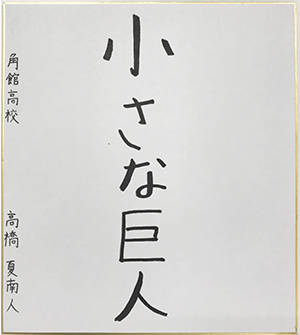 小さな巨人
角館高校
高橋夏南人